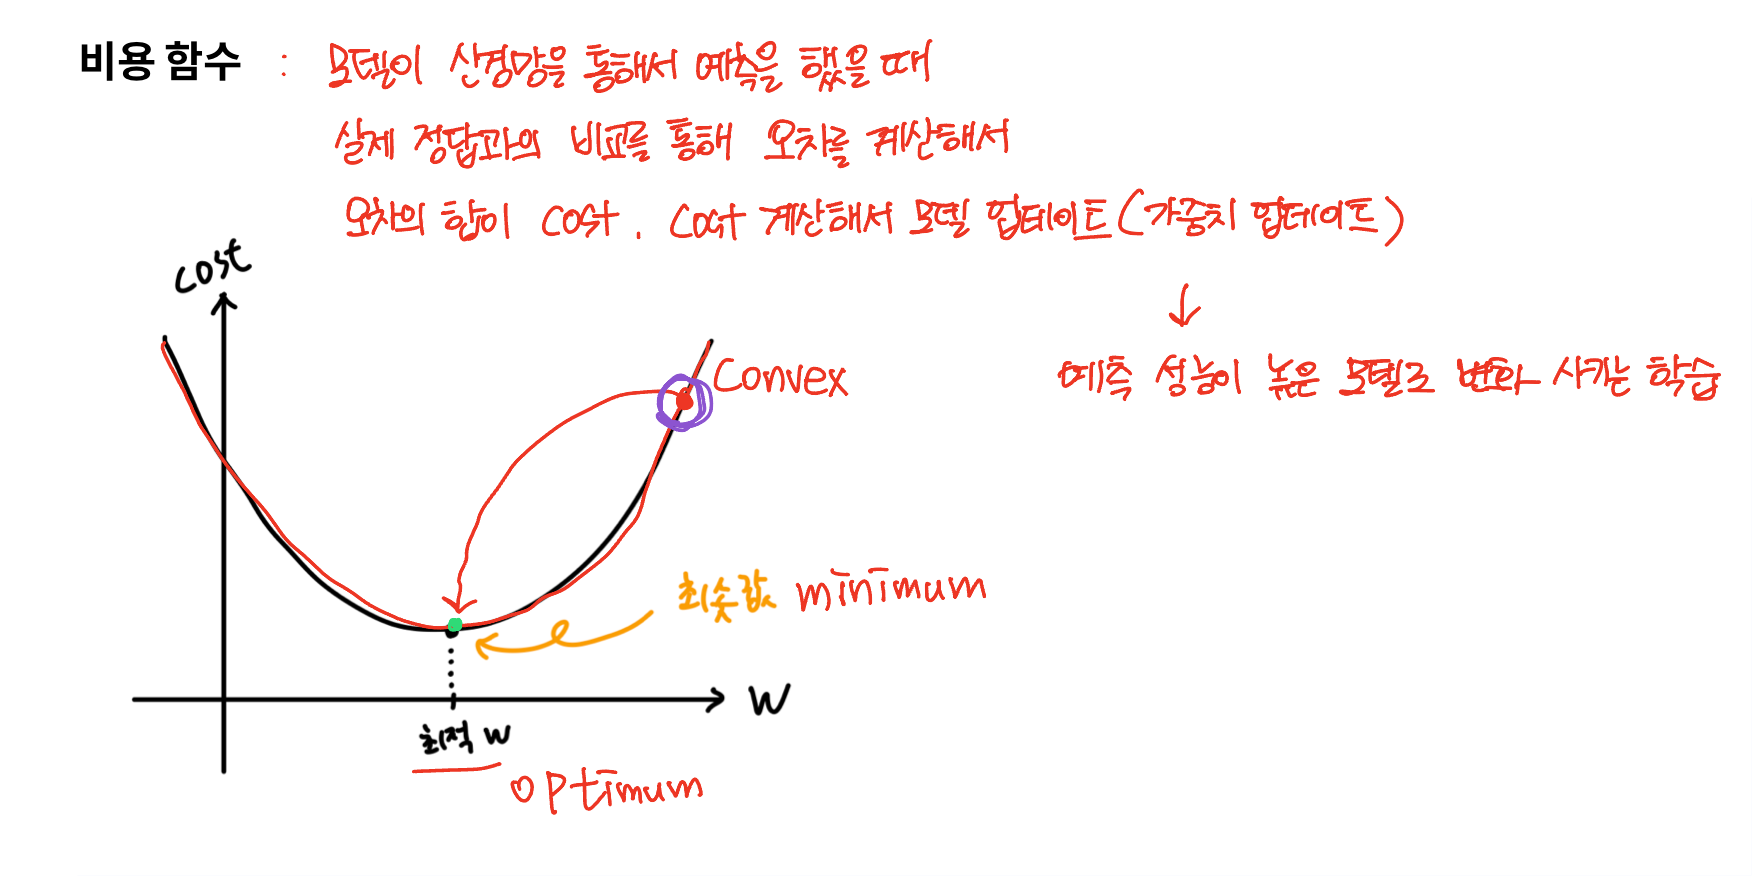 비용 함수 : 모델이 신경망을 통해서 예측을 했을 때
실제 정답과의 비교를 통해 오차를 계산해서
오차의 합이 cost. cost 계산해서 모델 업데이트 (가중치 업데이트)
↓
예측 성능이 높은 모델로 변화 시키는 학습
cost
Convex
최솟값 minimum
w
최적 w
optimum